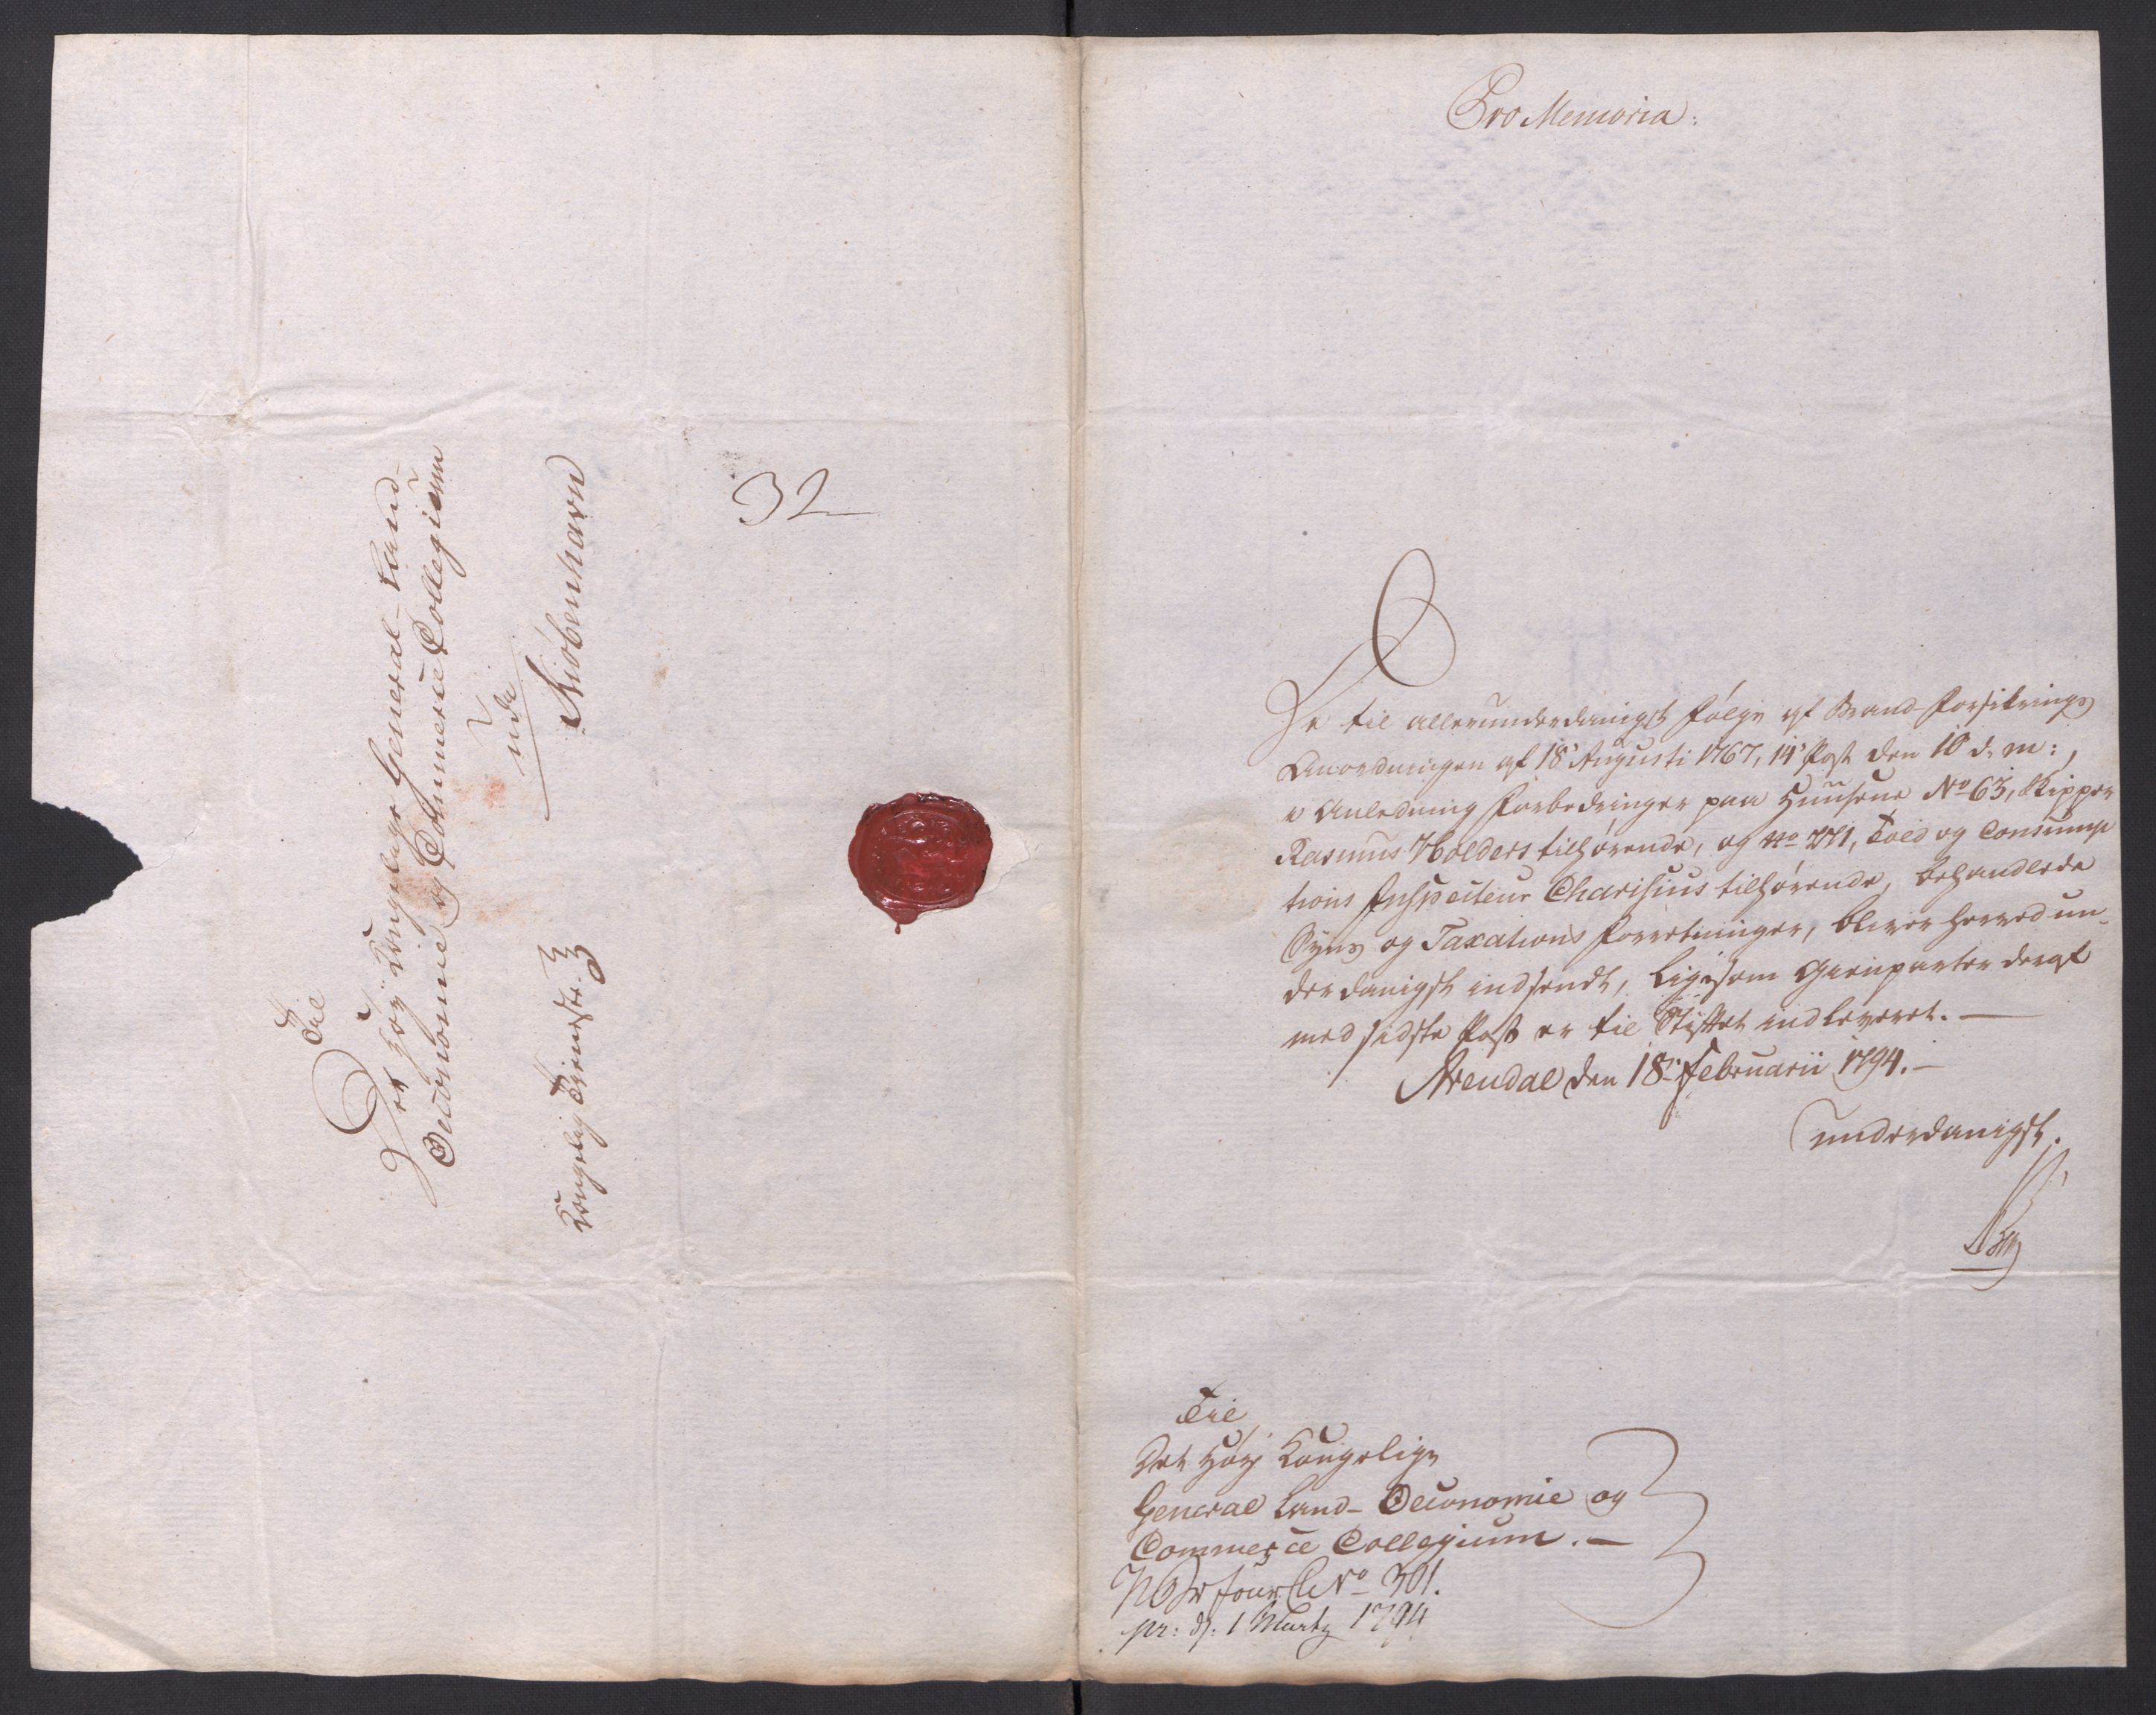 Til
Det Høy Kongelige General-Land-
Oeconomie og Commerce Collegium
udi
Kiöbenhavn
Kongelig Tieneste
32
Pro Memoria:
De til allerunderdanigst følge af Brand-Forsikrings
Anordningen af 18de Augusti 1767, 14de Post den 10 d. m:,
i Anledning Forbedringer paa Huusene No 63, Skipper
Rasmus Holders tilhørende, og No 271, Told og Consump
tions Inspecteur Charisius tilhørende, behandlede
Syns og Taxations Forretninger, bliver herved un-
derdanigst indsendt, ligesom Gienparter deraf
med sidste Post er til Stiftet indleveret. —
Arendal den 18de Februarii 1794. —
underdanigst.
Til
Det Høy Kongelige
General Land-Oeconomie og
Commerce Collegium. —
No 301.
pr: d: 1 Martz 1794